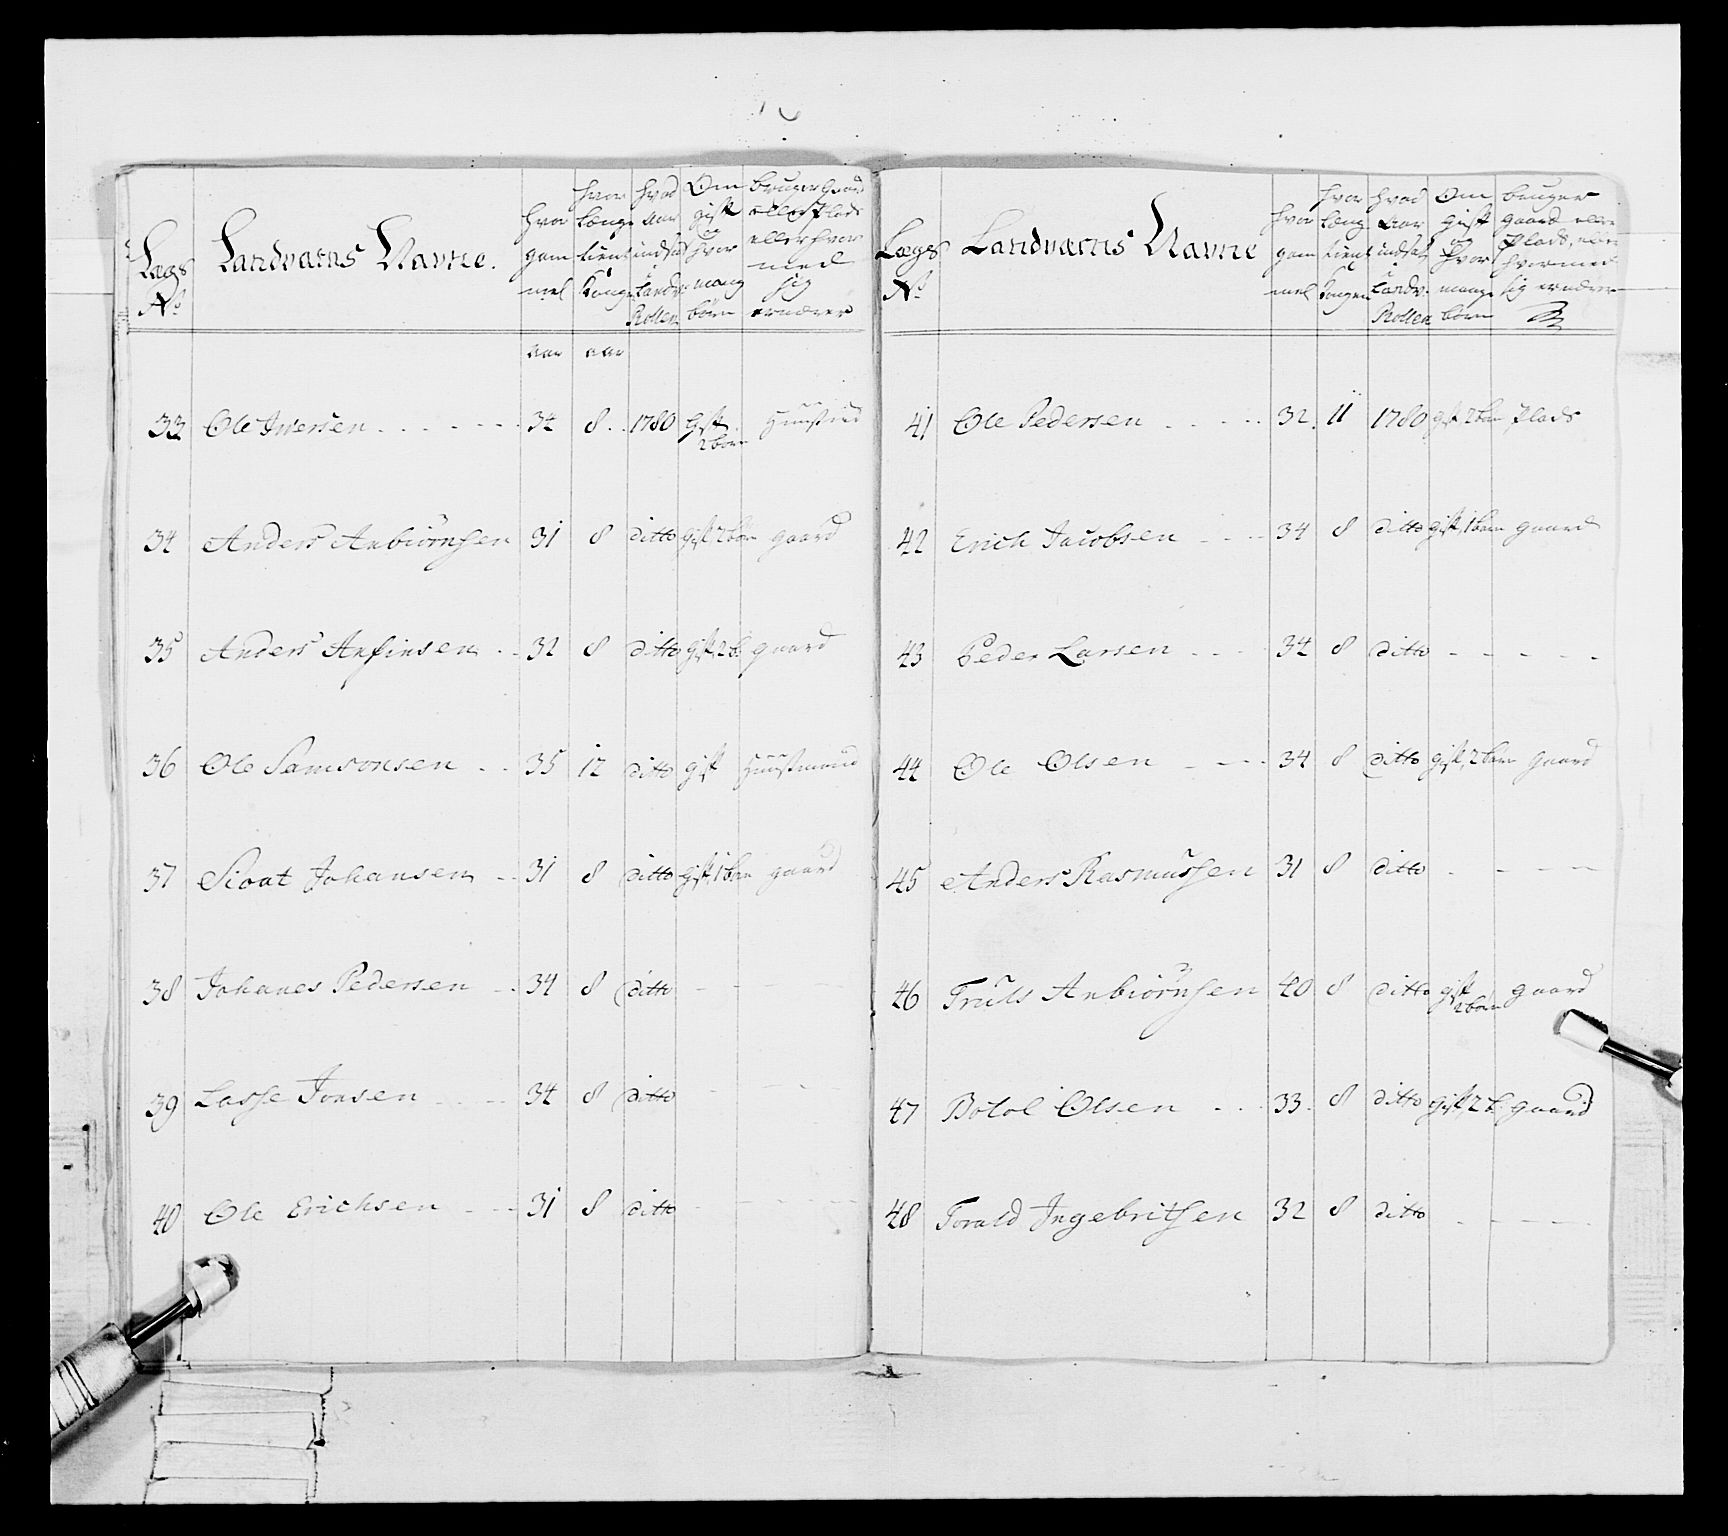 Lægs No
Landværns Navne.
hvor gammel
hvor længe tient Kongen
hvad Aar indsat i Landv: Rollen
Om gift og hvor mange børn
bruger Gaard eller Plads eller hvormed sig ernærer
aar aar
33 Ole Iversen 34 8 1780 gift 2 børn Huusmd
34 Anders Anbiörnsen 31 8 ditto gift 2 børn gaard
35 Anders Anfinsen 32 8 ditto gift, 2 b. gaard
36 Ole Samsonsen 35 12 ditto gift Huusmand
37 Sioat Johansen 31 8 ditto gift, 1 barn gaard
38 Johanes Pedersen 34 8 ditto - - - -
39 Lasse Jonsen 34 8 ditto - - - -
40 Ole Erichsen 31 8 ditto - - - -
Lægs No
Landværns Navne
hvor gammel
hvor længe tient Kongen
hvad Aar indsat i Landv. Rollen
Om gift og hvor mange børn
bruger gaard eller Plads, eller hvormed sig ernærer
41 Ole Pedersen 32. 11 1780 gift, 2 børn Plads
42 Erich Jacobsen 34 8 ditto gift, 1 barn gaard
43 Peder Larsen 34 8 ditto - - - - -
44 Ole Olsen 34 8 ditto gift, 2 børn gaard
45 Anders Rasmussen 31 8 ditto - - - -
46 Truls Anbiörnsen 40 8 ditto gift 2 børn gaard
47 Botol Olsen 33. 8 ditto gift, 2 b. gaard
48 Torald Ingebritsen 32 8 ditto - - - -